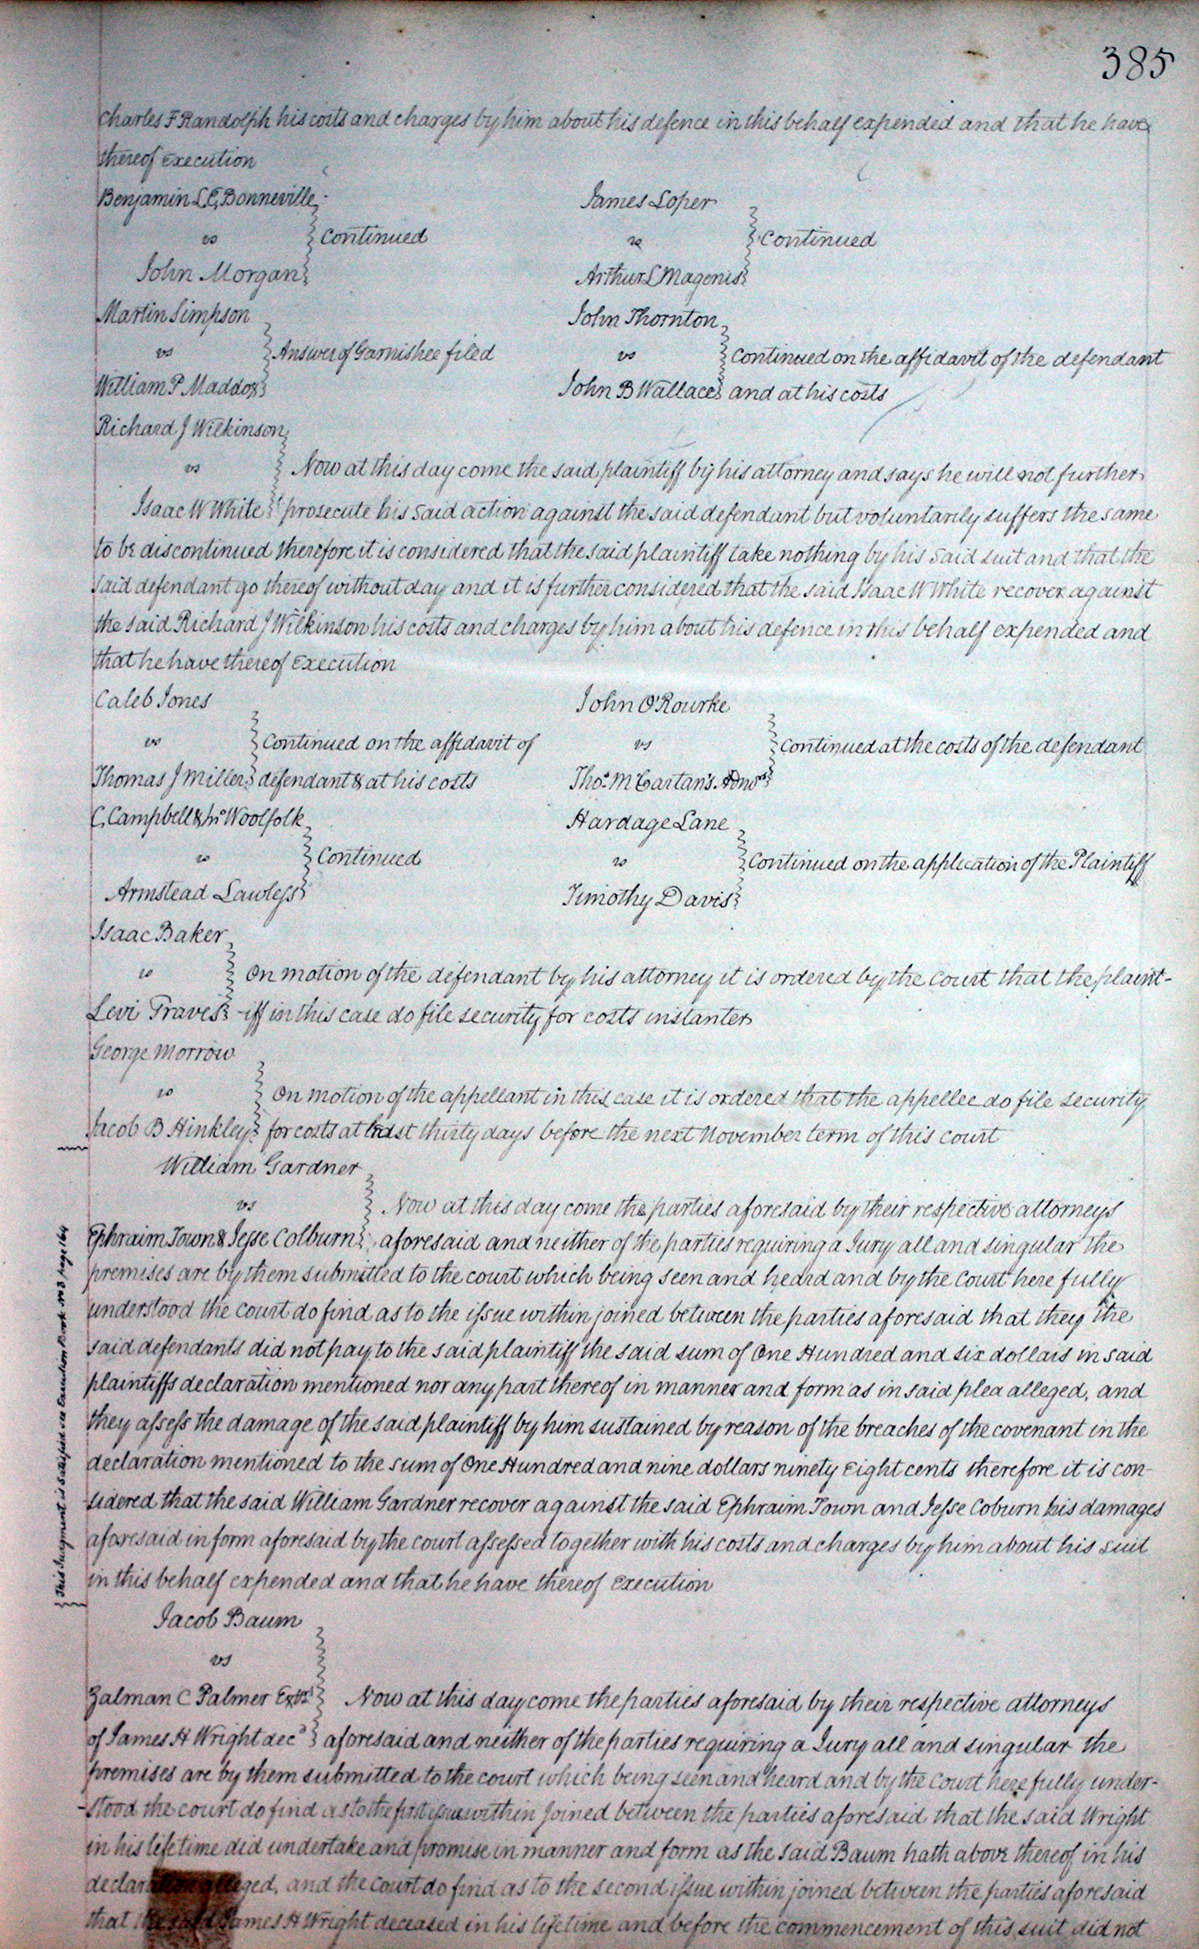 385
Charles F Randolph his costs and charges by him about his defence in this behalf expended and that he have
thereof Execution
Benjamin L E Bonneville
vs Continued
John Morgan
James Loper
vs Continued
Arthur L Magenis
Martin Simpson
vs Answer of Garnishee filed
William P Maddox
John Thornton
vs Continued on the affidavit of the defendant
John B Wallace and at his costs
Richard J Wilkinson
vs Now at this day come the said plaintiff by his attorney and says he will not further
Isaac W White prosecute his said action against the said defendant but voluntarily suffers the same
to be discontinued therefore it is considered that the said plaintiff take nothing by his said suit and that the
said defendant go thereof without day and it is further considered that the said Isaac W White recover against
the said Richard J Wilkinson his costs and charges by him about his defence in this behalf expended and
that he have thereof Execution
Caleb Jones
vs Continued on the affidavit of
Thomas J Miller defendant & at his costs
John O'Rourke
vs Continued at the costs of the defendant
Thos. M Cartan's
C, Campbell & Woolfolk
vs Continued
Armstead Lawless
Hardage Lane
vs Continued on the application of the Plaintiff
Timothy Davis
Isaac Baker
vs On motion of the defendant by his attorney it is ordered by the court that the plaint-
Levi Traves -iff in this case do file security for costs instanter
George Morrow
vs On motion of the appellant in this case it is ordered that the appellee do file security
Jacob B Hinkley for costs at least thirty days before the next November term of this court
William Gardner
vs Now at this day come the parties aforesaid by their respective attorneys
Ephraim Town & Jesse Colburn aforesaid and neither of the parties requiring a Jury all and singular the
premises are by them submitted to the court which being seen and heard and by the Court here fully
understood the court do find as to the issue within joined between the parties aforesaid that they the
said defendants did not pay to the said plaintiff the said sum of One Hundred and six dollars in said
plaintiffs declaration mentioned nor any part thereof in manner and form as in said plea alleged, and
they assess the damage of the said plaintiff by him sustained by reason of the breaches of the covenant in the
declaration mentioned to the sum of One Hundred and nine dollars ninety Eight cents therefore it is con-
sidered that the said William Gardner recover against the said Ephraim Town and Jesse Coburn his damages
aforesaid in form aforesaid by the court assessed together with his costs and charges by him about his suit
in this behalf expended and that he have thereof Execution
This Judgment is satisfied see Execution Book No 3 page 164
Jacob Baum
vs
Zalman C Palmer Extr Now at this day come the parties aforesaid by their respective attorneys
of James H Wright decd aforesaid and neither of the parties requiring a Jury all and singular the
premises are by them submitted to the court which being seen and heard and by the Court here fully under-
-stood the court do find as to the first issue within joined between the parties aforesaid that the said Wright
in his lifetime did undertake and promise in manner and form as the said Baum hath above thereof in his
declaration alleged, and the court do find as to the second issue within joined between the parties aforesaid
that the said James H Wright deceased in his lifetime and before the commencement of this suit did not